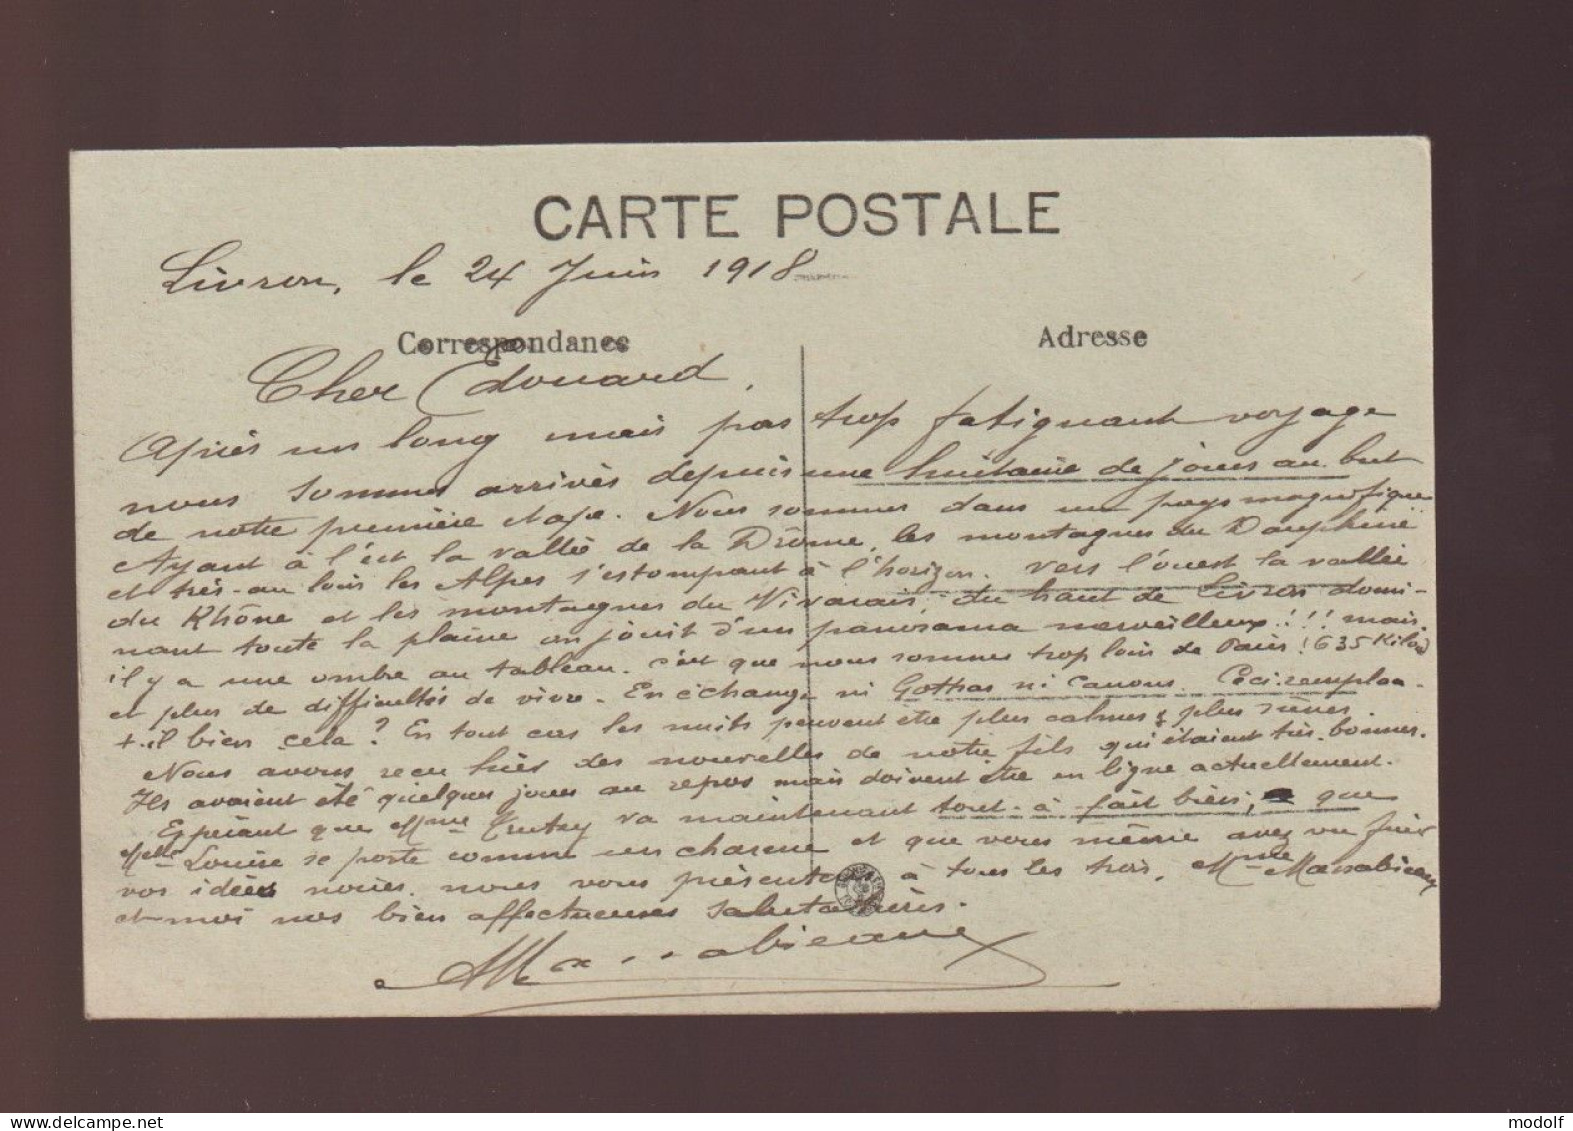 CARTE POSTALE
Livron, le 24 Juin 1918
Correspondance
Adresse
Cher Edouard,
Après un long mais pas trop fatiguant voyage
nous sommes arrivés depuis une huitaine de jours au but
de notre première étape. Nous sommes dans un pays magnifique
Ayant à l'est la vallée de la Drôme, les montagnes du Dauphiné
et très-au loin les Alpes s'estompant à l'horizon. Vers l'ouest la vallée
du Rhône et les montagnes du Vivarais, du haut de Livron domi-
nant toute la plaine on jouit d'un panorama merveilleux!!! mais
il y a une ombre au tableau. c'est que nous sommes trop loin de Paris! (635 Kilos)
et plus de difficultés de vivre. En échange ni Gothas ni canons. Ceci remplace-
t-il bien cela? En tout cas les nuits peuvent être plus calmes & plus sûres.
Nous avons reçu hier des nouvelles de notre fils qui étaient très-bonnes.
Ils avaient été quelques jours au repos mais doivent être en ligne actuellement.
Espérant que Mme va maintenant tout-à-fait bien, que
Melle Louise se porte comme un charme et que vous même avez vu fuir
vos idées noires, nous vous présentons à tous les trois, Mme Massabieaux
et moi nos bien affectueuses salutations.
Massabieaux
www.delcampe.net
modolf